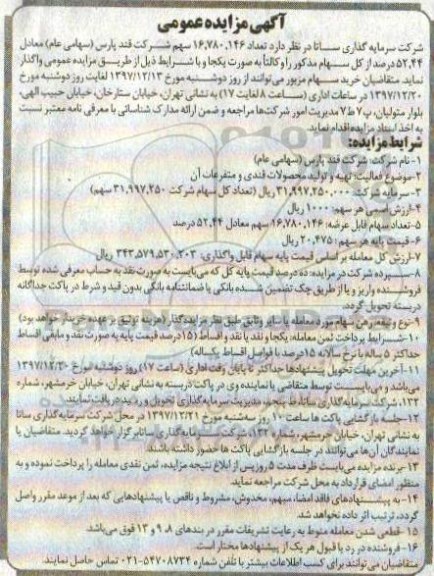 آگهی مزایده عمومی
شرکت سرمایه گذاری ساتا در نظر دارد تعداد ۱۶,۷۸۰,۱۴۶ سهم شرکت قند پارس (سهامی عام) معادل
۵۲,۴۴ درصد از کل سهام مذکور را وکالتاً به صورت یکجا و با شرایط ذیل از طریق مزایده عمومی واگذار
نماید. متقاضیان خرید سهام مزبور می‌توانند از روز دوشنبه مورخ ۱۳۹۷/۱۲/۱۳ لغایت روز دوشنبه مورخ
۱۳۹۷/۱۲/۲۰ در ساعات اداری (ساعت ۸ لغایت ۱۷) به نشانی تهران، خیابان ستارخان، خیابان حبیب الهی،
بلوار متولیان، پ۷ ط۷ مدیریت امور شرکت‌ها مراجعه و ضمن ارائه مدارک شناسائی با معرفی نامه معتبر نسبت
به اخذ اسناد مزایده اقدام نماید.
شرایط مزایده:
۱-نام شرکت: شرکت قند پارس (سهامی عام)
۲-موضوع فعالیت: تهیه و تولید محصولات قندی و متفرعات آن
۳-سرمایه شرکت: ۳۱,۹۹۷,۲۵۰,۰۰۰ ریال (تعداد کل سهام شرکت ۳۱,۹۹۷,۲۵۰ سهم)
۴-ارزش اسمی هر سهم: ۱۰۰۰ ریال
۵-تعداد سهام قابل عرضه: ۱۶,۷۸۰,۱۴۶ سهم معادل ۵۲,۴۴ درصد
۶-قیمت پایه هر سهم: ۲۰,۴۷۵ ریال
۷-ارزش کل معامله بر اساس قیمت پایه سهام قابل واگذاری: ریال
۸-سپرده شرکت در مزایده: ده درصد قیمت پایه کل که می‌بایست به صورت نقد به حساب معرفی شده توسط
فروشنده واریز و یا از طریق چک تضمین شده بانکی یا ضمانتنامه بانکی بدون قید و شرط در پاکت جداگانه
دربسته تحویل گردد.
۹-نوع وثیقه: رهن سهام مورد معامله یا سایر وثایق طبق نظر مزایده‌گذار (هزینه توثیق بر عهده خریدار خواهد بود)
۱۰-شرایط پرداخت ثمن معامله: یکجا و نقد یا نقد و اقساط (۱۵ درصد قیمت پایه به صورت نقد و مابقی اقساط
حداکثر ۵ ساله با نرخ سالانه ۱۵ درصد با فواصل اقساط یکساله)
۱۱-آخرین مهلت تحویل پیشنهادها حداکثر تا پایان وقت اداری (ساعت ۱۷) روز دوشنبه مورخ ۱۳۹۷/۱۲/۲۰
می‌باشد و می‌بایست توسط متقاضی یا نماینده وی در پاکت دربسته به نشانی تهران، خیابان خرمشهر، شماره
۱۳۲، شرکت سرمایه‌گذاری ساتا، ط پنجم، مدیریت سرمایه‌گذاری تحویل و رسید دریافت نمایند.
۱۲-جلسه بازگشایی پاکت ها ساعت ۱۰ روز سه‌شنبه مورخ ۱۳۹۷/۱۲/۲۱ در محل شرکت سرمایه گذاری ساتا
به نشانی تهران، خیابان خرمشهر، شماره ۱۳۲، شرکت سرمایه‌گذاری ساتا برگزار خواهد گردید. متقاضیان یا
نمایندگان آن‌ها می‌توانند در جلسه بازگشایی پاکت ها حضور داشته باشند.
۱۳-برنده مزایده می‌بایست ظرف مدت ۵ روز پس از ابلاغ نتیجه مزایده، ثمن نقدی معامله را پرداخت نموده و به
منظور امضای قرارداد به محل شرکت مراجعه نماید.
۱۴-به پیشنهادهای فاقد امضاء، مبهم، مخدوش، مشروط و ناقص یا پیشنهادهایی که بعد از موعد مقرر واصل
گردد، ترتیب اثر داده نخواهد شد.
۱۵-قطعی شدن معامله منوط به رعایت تشریفات مقرر در بندهای ۸، ۹ و ۱۳ فوق می‌باشد.
۱۶-فروشنده در رد یا قبول هر یک از پیشنهادها مختار است.
متقاضیان می‌توانند برای کسب اطلاعات بیشتر با تلفن شماره ۵۴۷۰۸۷۳۴-۰۲۱ تماس حاصل نمایند.